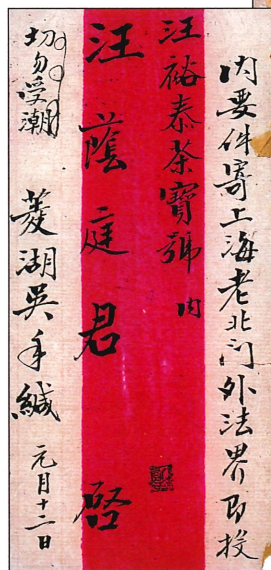 内要件寄上海老北门外法界即投
汪裕泰茶寳號 内
汪蔭庭君 啓
切勿受潮
菱湖吴手緘 元月十一日